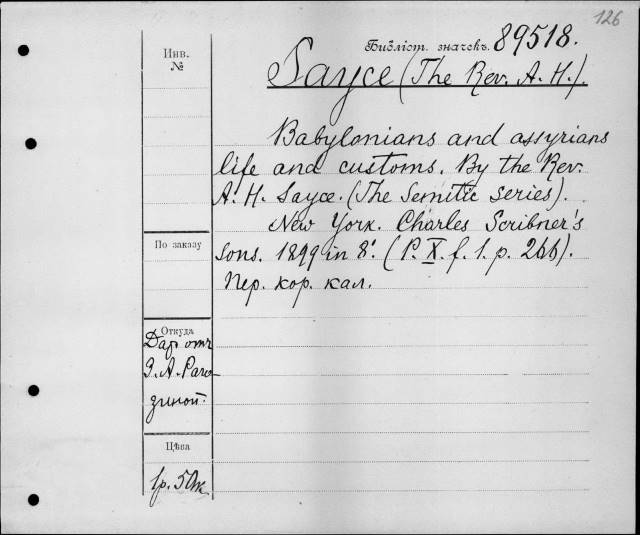 126
Библіот. значекъ. 89518.
Инв.
№
Sayce (The Rev. A. H.).
Babylonians and assyrians
life and customs. By the Rev.
A. H. Sayce. (The Semitic series).
New York. Charles Scribner's
sons. 1899 in 8º. (P. X. f. 1. p. 266).
Пер. кор. кал.
По заказу
Откуда
Дар отъ
З. А. Раго-
зиной.
Цѣна
1р. 50к